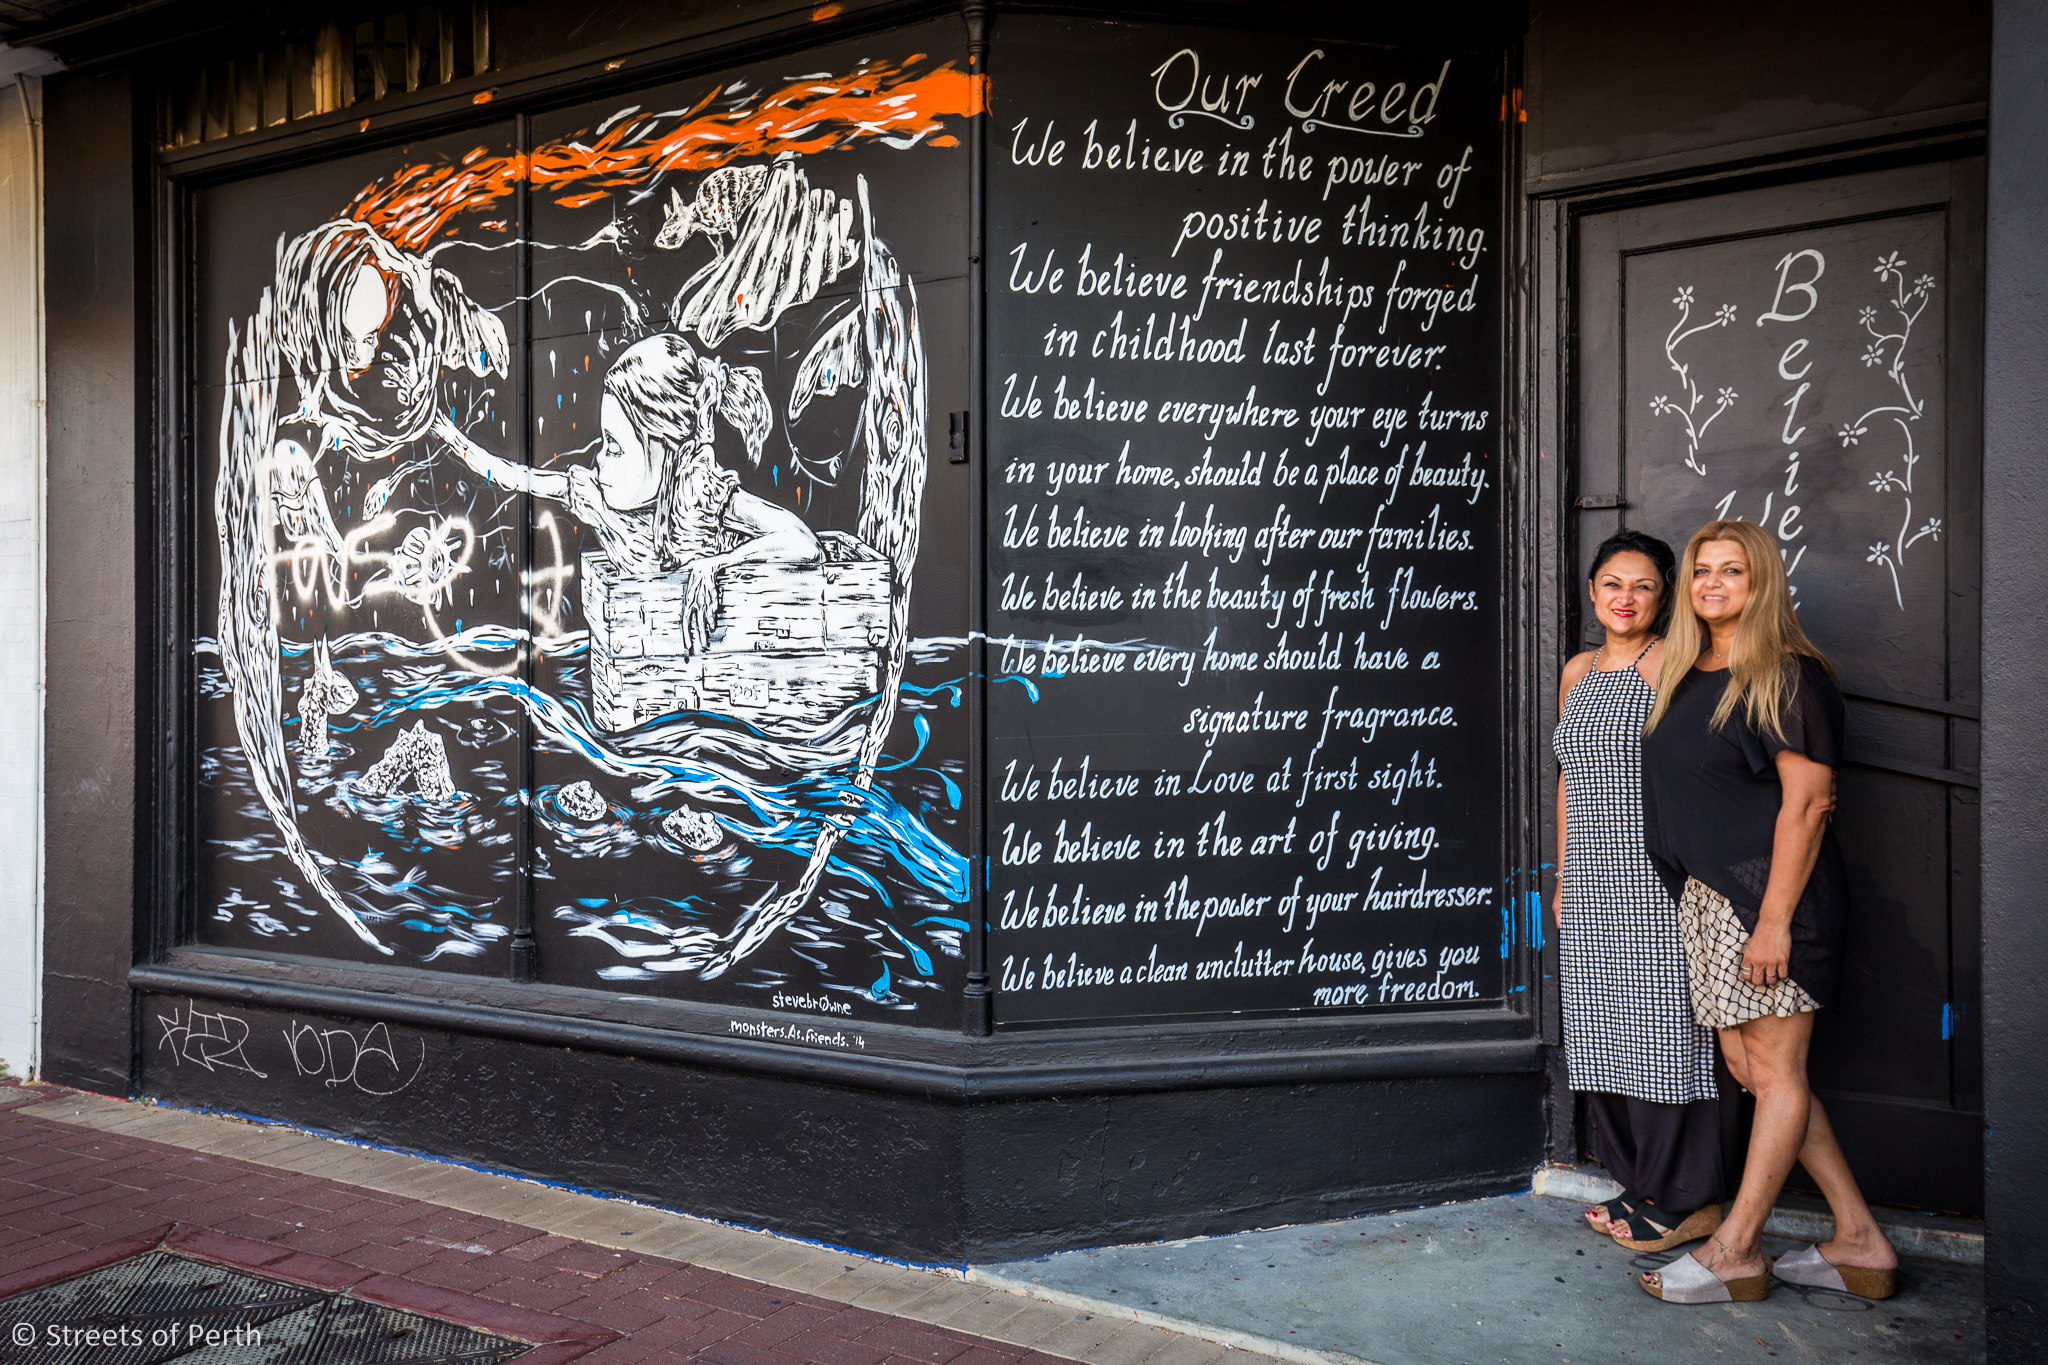 Our Creed
We believe in the power of
positive thinking.
We believe friendships forged
in childhood last forever.
We believe everywhere your eye turns
in your home, should be a place of beauty.
We believe in looking after our families.
We believe in the beauty of fresh flowers.
We believe every home should have a
signature fragrance.
We believe in Love at first sight.
We believe in the art of giving.
We believe in the power of your hairdresser.
We believe a clean unclutter house, gives you
more freedom.
Believe
stevebrØwne
monsters.As.friends. '14
© Streets of Perth